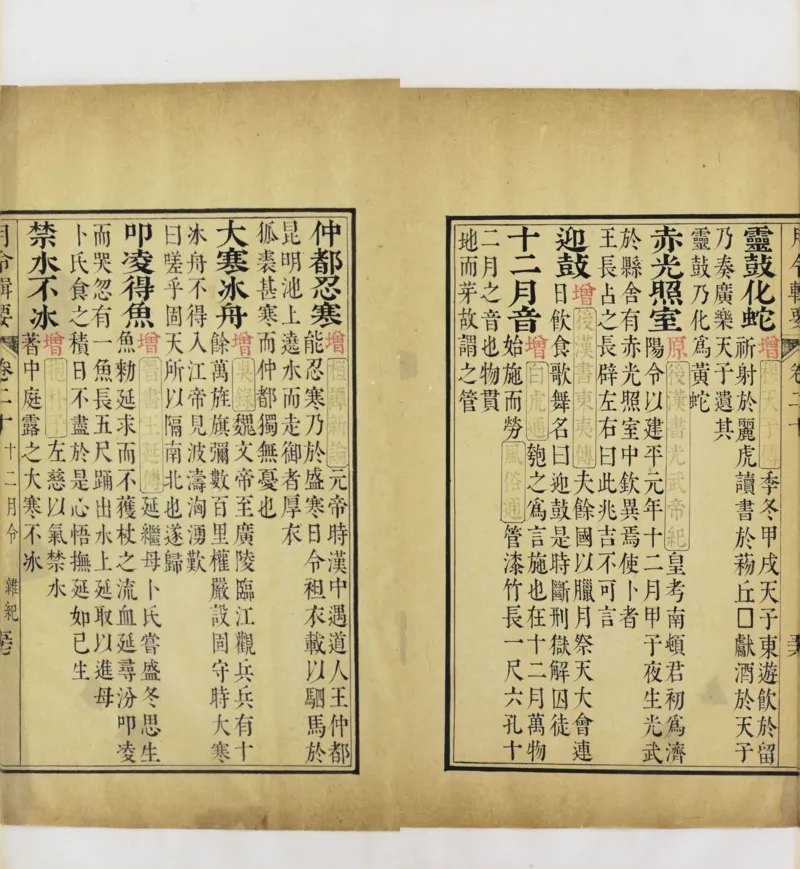 月令輯要 卷二十
靈鼓化蛇
增穆天子傳季冬甲戌天子東遊飲於留
祈射於麗虎讀書於丘囗獻酒於天子
乃奏廣樂天子遺其
靈鼓乃化爲黃蛇
赤光照室
原後漢書光武帝紀皇考南頓君初爲濟
陽令以建平元年十二月甲子夜生光武
於縣舍有赤光照室中欽異焉使卜者
王長占之長辟左右曰此兆吉不可言
迎鼓
增後漢書東夷傳夫餘國以臘月祭天大會連
日飲食歌舞名曰迎鼓是時斷刑獄解囚徒
十二月音
增白虎通匏之爲言施也在十二月萬物
始施而勞風俗通管漆竹長一尺六孔十
二月之音也物貫
地而芽故謂之管
仲都忍寒
增桓譚新論元帝時漢中遇道人王仲都
能忍寒乃於盛寒日令袒衣載以駟馬於
昆明池上遶水而走御者厚衣
狐裘甚寒而仲都獨無憂也
大寒冰舟
增吳錄魏文帝至廣陵臨江觀兵兵有十
餘萬旌旗彌數百里權嚴設固守時大寒
冰舟不得入江帝見波濤洶湧歎
曰嗟乎固天所以隔南北也遂歸
叩凌得魚
增晉書王延傳延繼母卜氏嘗盛冬思生
魚勅延求而不獲杖之流血延尋汾叩凌
而哭忽有一魚長五尺踊出水上延取以進母
卜氏食之積日不盡於是心悟撫延如己生
禁水不冰
增抱朴子左慈以氣禁水
著中庭露之大寒不冰
月令輯要 卷二十 十二月令 雜紀